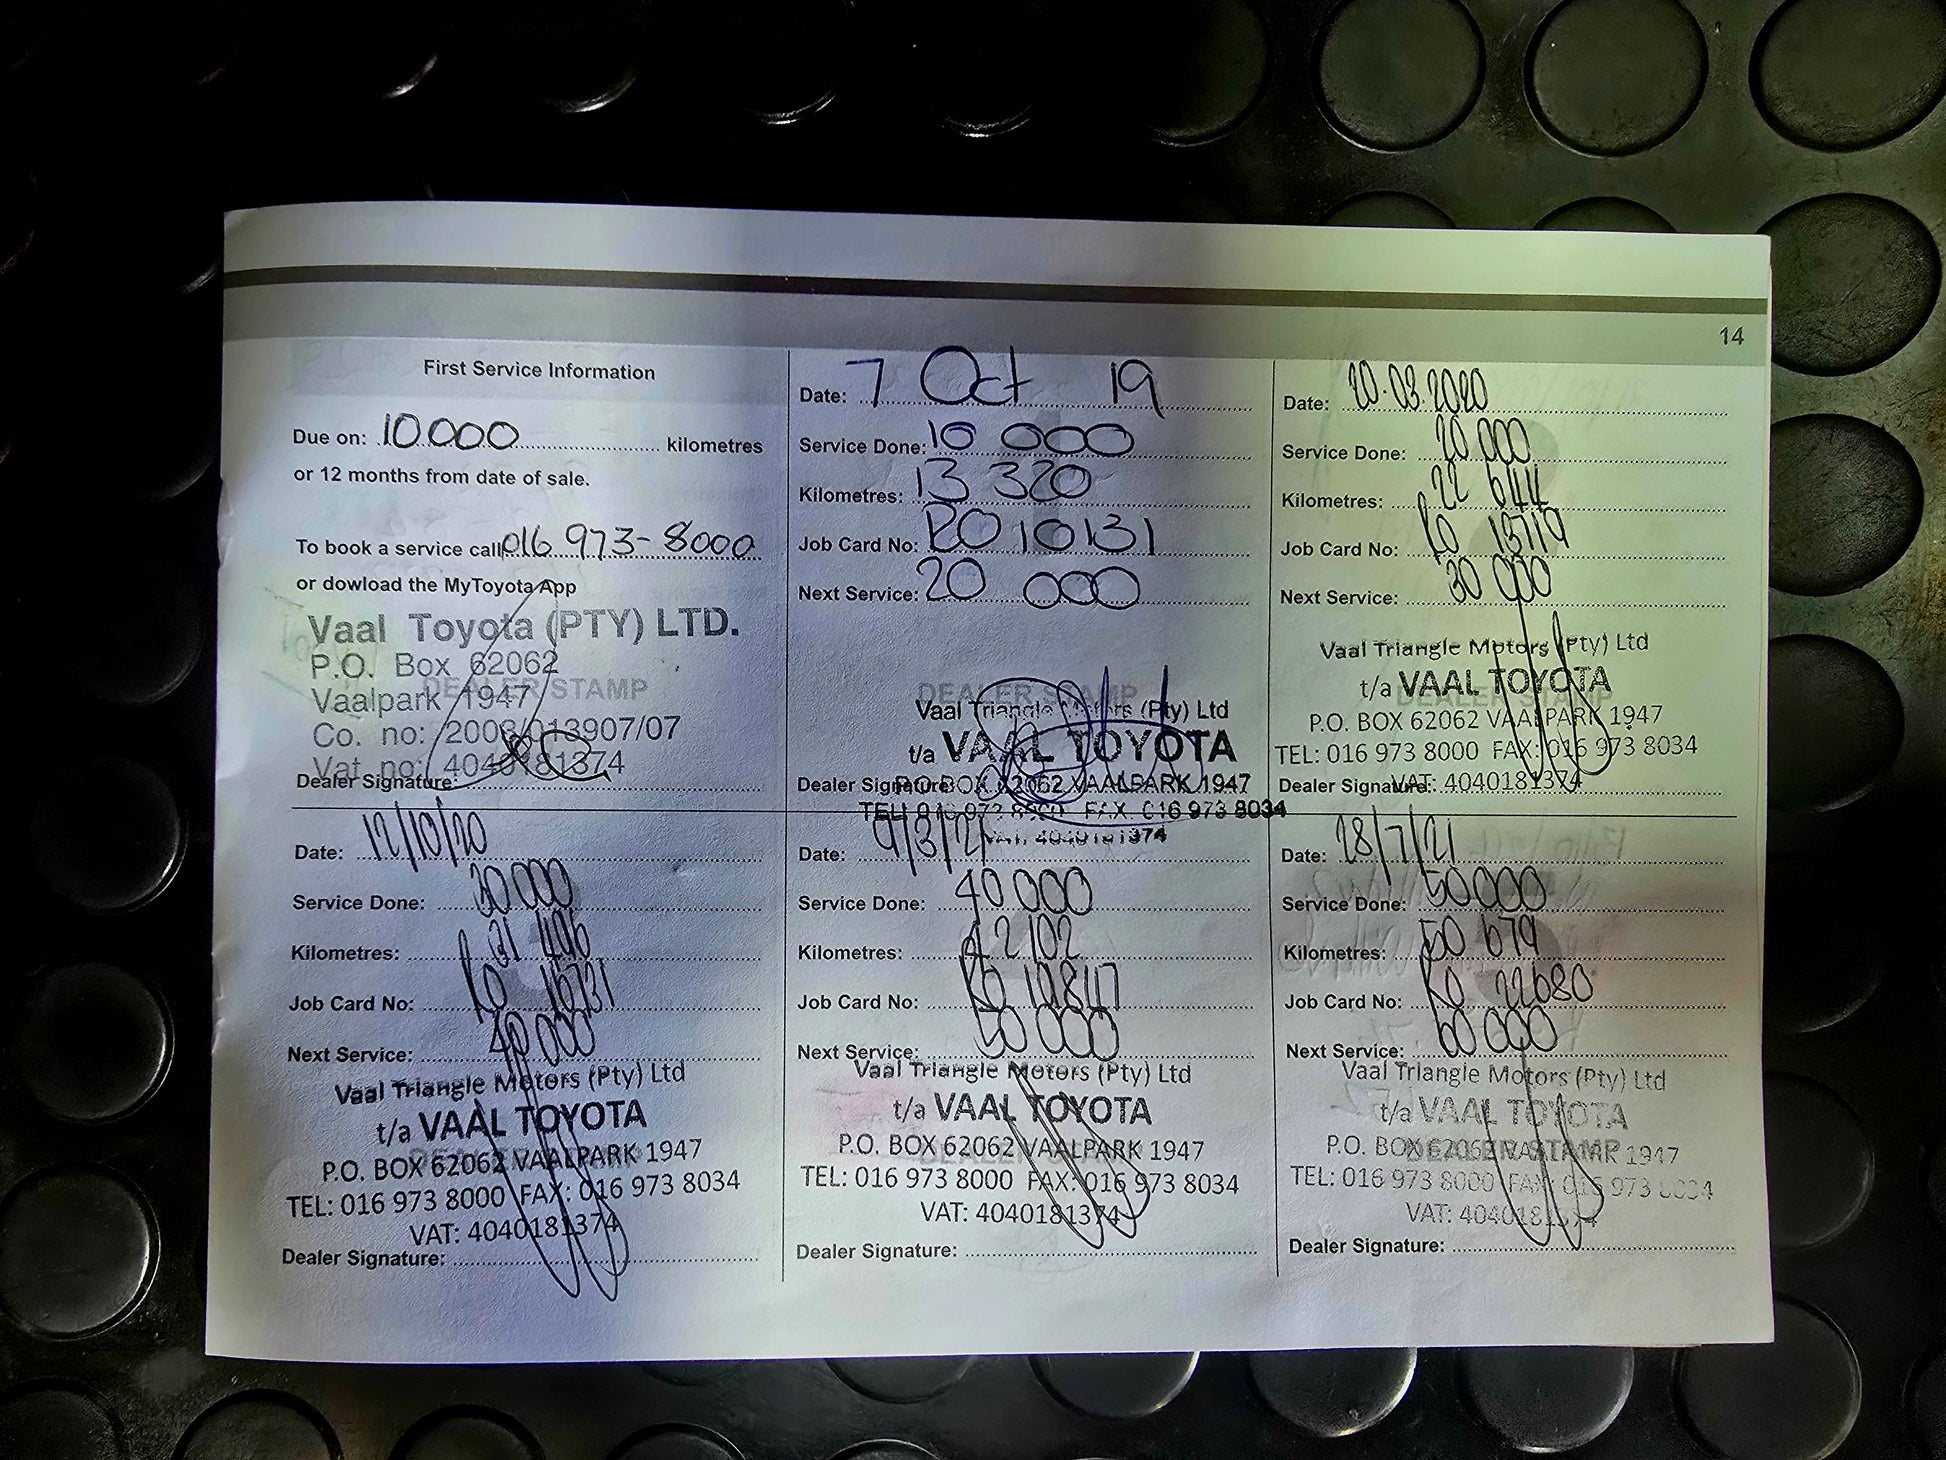 14
First Service Information
Due on: 10 000 kilometres
or 12 months from date of sale.
To book a service call 016 973-8000
or dowload the MyToyota App
Vaal Toyota (PTY) LTD.
P.O. Box 62062
DEALER STAMP
Vaalpark 1947
Co. no: /2008/013907/07
Vat no: 4040181374
Dealer Signature:
Date: 7 Oct 19
Service Done: 10 000
Kilometres: 13 320
Job Card No: RO 10131
Next Service: 20 000
DEALER STAMP
Vaal Triangle Motors (Pty) Ltd
t/a VAAL TOYOTA
P.O BOX 62062 VAALPARK 1947
Dealer Signature:
TEL: 016 973 8000 FAX: 016 973 8034
VAT: 4040181374
Date: 20.03.2020
Service Done: 20 000
Kilometres: 22 644
Job Card No: RO 13719
Next Service: 30 000
Vaal Triangle Motors (Pty) Ltd
t/a VAAL TOYOTA
DEALER STAMP
P.O. BOX 62062 VAALPARK 1947
TEL: 016 973 8000 FAX: 016 973 8034
Dealer Signature:
VAT: 4040181374
Date: 12/10/20
Service Done: 30 000
Kilometres: 31 496
Job Card No: RO 16731
Next Service: 40 000
Vaal Triangle Motors (Pty) Ltd
t/a VAAL TOYOTA
DEALER STAMP
P.O. BOX 62062 VAALPARK 1947
TEL: 016 973 8000 FAX: 016 973 8034
VAT: 4040181374
Dealer Signature:
Date: 9/3/21
Service Done: 40 000
Kilometres: 42 102
Job Card No: RO 19847
Next Service: 50 000
Vaal Triangle Motors (Pty) Ltd
t/a VAAL TOYOTA
P.O. BOX 62062 VAALPARK 1947
DEALER STAMP
TEL: 016 973 8000 FAX: 016 973 8034
VAT: 4040181374
Dealer Signature:
Date: 28/7/21
Service Done: 50 000
Kilometres: 50 679
Job Card No: RO 22680
Next Service: 60 000
Vaal Triangle Motors (Pty) Ltd
t/a VAAL TOYOTA
P.O. BOX 62062 VAALPARK 1947
DEALER STAMP
TEL: 016 973 8000 FAX: 016 973 8034
VAT: 4040181374
Dealer Signature: